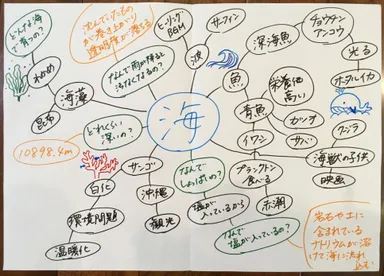 海
波
サーフィン
ヒーリング
BGM
沈んでいたもの
が巻き上がり
透明度が落ちる
なんで雨が降ると
汚なくなるの?
どんな海
で育つの?
わかめ
昆布
海藻
どれくらい
深いの?
10898.4m
サンゴ
白化
環境問題
温暖化
沖縄
観光
なんで
しょっぱいの?
塩が
入っているから
なんで
塩が入っているの?
岩石や土に
含まれている
ナトリウムが溶
けて海に流れ
込む
魚
深海魚
チョウチン
アンコウ
光る
ホタルイカ
青魚
栄養価
高い
イワシ
サバ
プランクトン
食べる
赤潮
クジラ
海獣の子供
映画